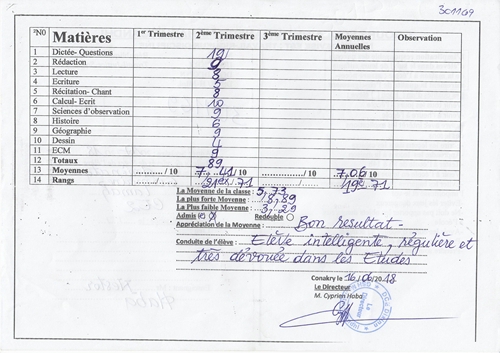 301109
N0 Matières 1er Trimestre 2ème Trimestre 3ème Trimestre Moyennes Annuelles Observation
1 Dictée- Questions 19
2 Rédaction 9
3 Lecture 8
4 Ecriture 5
5 Récitation- Chant 8
6 Calcul- Ecrit 10
7 Sciences d'observation 9
8 Histoire 6
9 Géographie 9
10 Dessin 4
11 ECM 9
12 Totaux 89
13 Moyennes ............/ 10 7,41/ 10 ............/ 10 7,06/ 10
14 Rangs 71 19e 71
La Moyenne de la classe : 5,73
La plus forte Moyenne : 8,89
La Plus faible Moyenne : 3,29
Admis (e) Redouble
Appréciation de la Moyenne : Bon resultat-
Conduite de l'élève : Elève intelligente, régulière et
très dévouée dans les Etudes
Conakry le 16/06/2018
Le Directeur
M. Cyprien Haba
Le Directeur